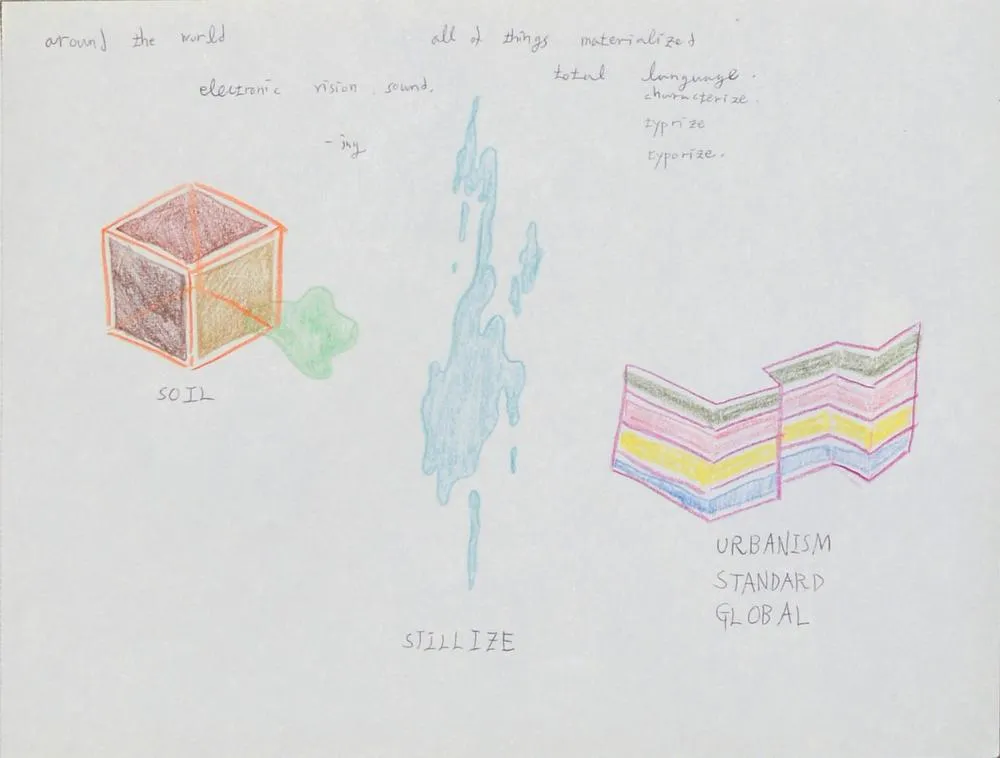 around the world
all of things materialized
electronic vision sound.
total language.
characterize.
typrize
typorize.
-ing
SOIL
STILLIZE
URBANISM
STANDARD
GLOBAL